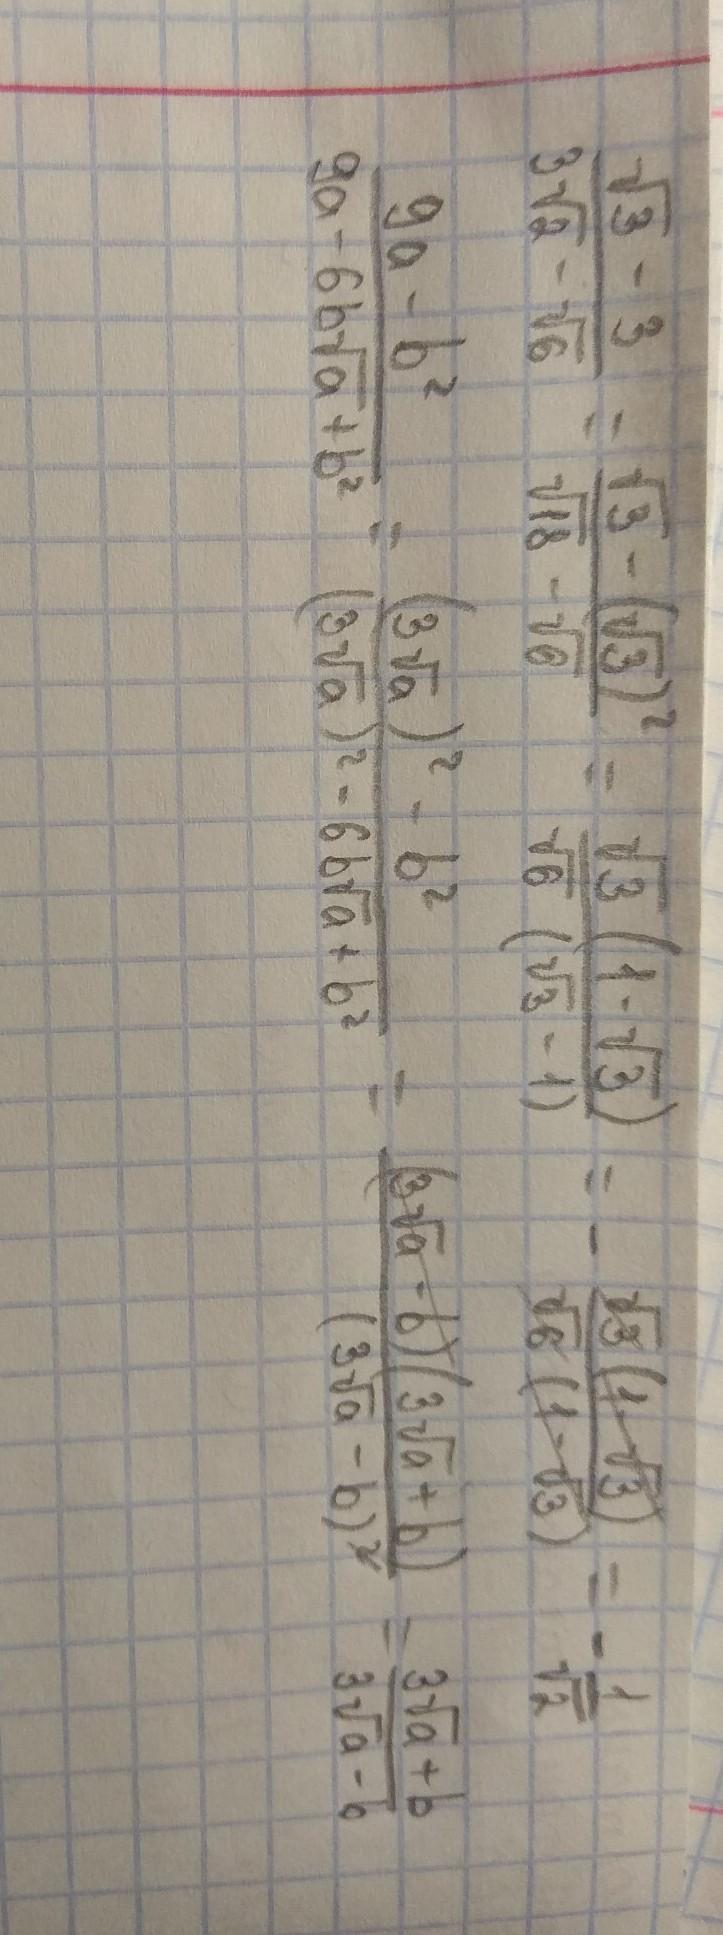 (√3 - 3)/(3√2 - √6) = (√3 - (√3)²)/(√18 - √6) = (√3(1 - √3))/(√6(√3 - 1)) = - (√3(1 - √3))/(√6(1 - √3)) = - 1/√2
(9a - b²)/(9a - 6b√a + b²) = ((3√a)² - b²)/((3√a)² - 6b√a + b²) = ((3√a - b)(3√a + b))/((3√a - b)²) = (3√a + b)/(3√a - b)